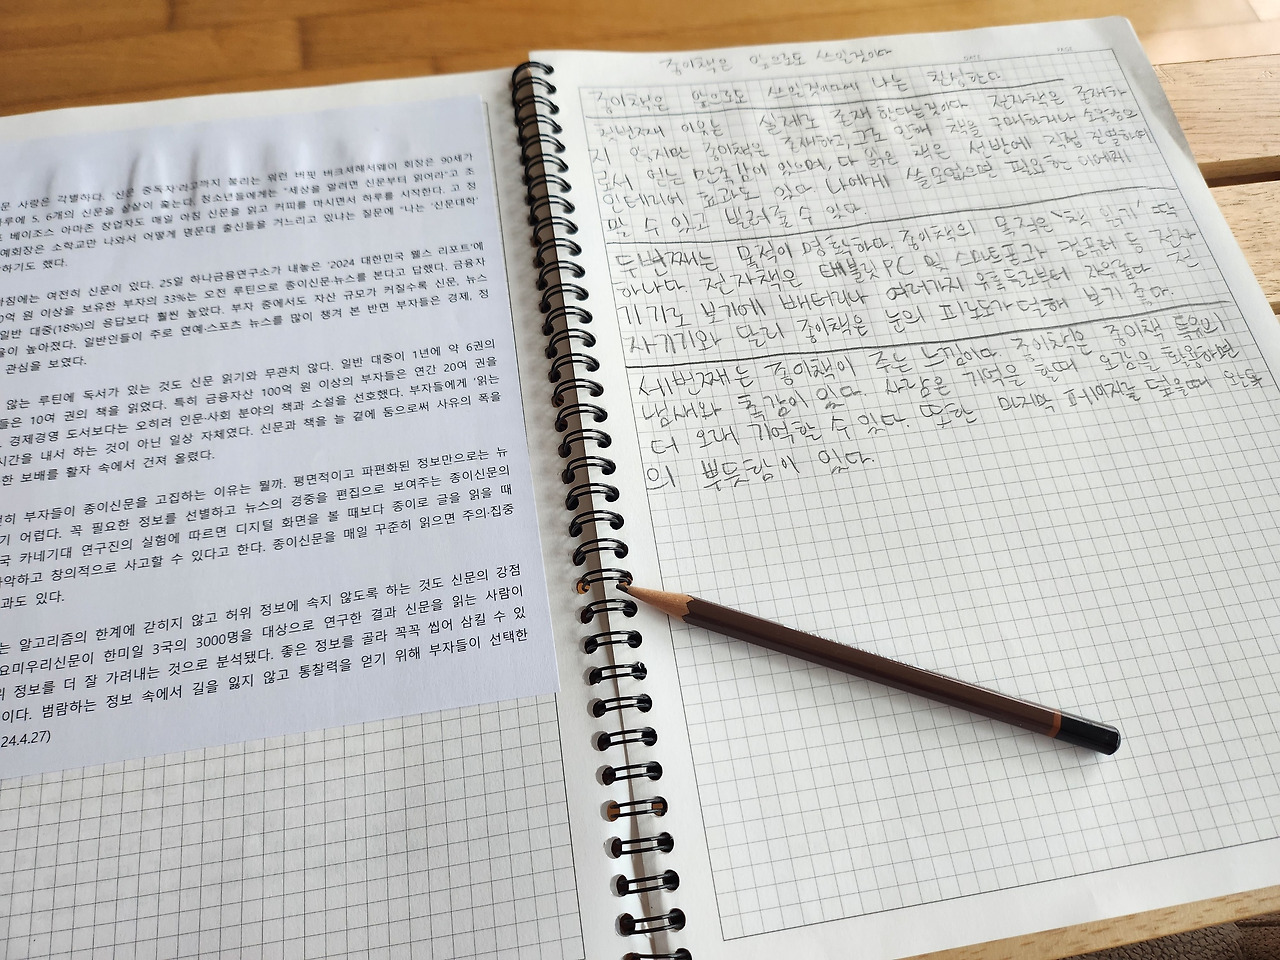 문 사랑은 각별하다. '신문 중독자'라고까지 불리는 워런 버핏 버크셔해서웨이 회장은 90세가
하루에 5, 6개의 신문을 샅샅이 훑는다. 청소년들에게는 "세상을 알려면 신문부터 읽어라"고 조
프 베이조스 아마존 창업자도 매일 아침 신문을 읽고 커피를 마시면서 하루를 시작한다. 고 정
예회장은 소학교만 나와서 어떻게 명문대 출신들을 거느리고 있냐는 질문에 "나는 '신문대학'
하기도 했다.
아침에는 여전히 신문이 있다. 25일 하나금융연구소가 내놓은 '2024 대한민국 웰스 리포트'에
0억 원 이상을 보유한 부자의 33%는 오전 루틴으로 종이신문·뉴스를 본다고 답했다. 금융자
일반 대중(18%)의 응답보다 훨씬 높았다. 부자 중에서도 자산 규모가 커질수록 신문, 뉴스
율이 높아졌다. 일반인들이 주로 연예·스포츠 뉴스를 많이 챙겨 본 반면 부자들은 경제, 정
관심을 보였다.
않는 루틴에 독서가 있는 것도 신문 읽기와 무관치 않다. 일반 대중이 1년에 약 6권의
들은 10여 권의 책을 읽었다. 특히 금융자산 100억 원 이상의 부자들은 연간 20여 권을
경제경영 도서보다는 오히려 인문·사회 분야의 책과 소설을 선호했다. 부자들에게 '읽는
시간을 내서 하는 것이 아닌 일상 자체였다. 신문과 책을 늘 곁에 둠으로써 사유의 폭을
한 보배를 활자 속에서 건져 올렸다.
전히 부자들이 종이신문을 고집하는 이유는 뭘까. 평면적이고 파편화된 정보만으로는 뉴
기 어렵다. 꼭 필요한 정보를 선별하고 뉴스의 경중을 편집으로 보여주는 종이신문의
국 카네기대 연구진의 실험에 따르면 디지털 화면을 볼 때보다 종이로 글을 읽을 때
악하고 창의적으로 사고할 수 있다고 한다. 종이신문을 매일 꾸준히 읽으면 주의·집중
과도 있다.
는 알고리즘의 한계에 갇히지 않고 허위 정보에 속지 않도록 하는 것도 신문의 강점
요미우리신문이 한미일 3국의 3000명을 대상으로 연구한 결과 신문을 읽는 사람이
위 정보를 더 잘 가려내는 것으로 분석됐다. 좋은 정보를 골라 꼭꼭 씹어 삼킬 수 있
이다. 범람하는 정보 속에서 길을 잃지 않고 통찰력을 얻기 위해 부자들이 선택한
24.4.27)
종이책은 앞으로도 쓰일것이다
DATE PAGE
종이책은 앞으로도 쓰일것이다에 나는 찬성한다
첫번째 이유는 실제로 존재한다는것이다. 전자책은 존재하
지 않지만 종이책은 존재하고, 그로 인해 책을 구매하거나 소유함으
로서 얻는 만족감이 있으며, 다 읽은 책은 선반에 직접 진열하여
인테리어 효과도 있다. 나에게 쓸모없으면 필요한 이에게
팔 수 있고 빌려줄 수 있다.
두번째는 목적이 명확하다. 종이책의 목적은 '책 읽기' 딱
하나다. 전자책은 태블릿PC 및 스마트폰과 컴퓨터 등 전자
기기로 보기에 배터리나 여러가지 유혹들로부터 자유롭다. 전
자기기와 달리 종이책은 눈의 피로도가 덜해 보기 좋다.
세번째는 종이책이 주는 느낌이다. 종이책은 종이책 특유의
냄새와 촉감이 있다. 사람은 기억을 할때 오감을 활용하면
더 오래 기억할 수 있다. 또한 마지막 페이지를 덮을때 완독
의 뿌듯함이 있다.